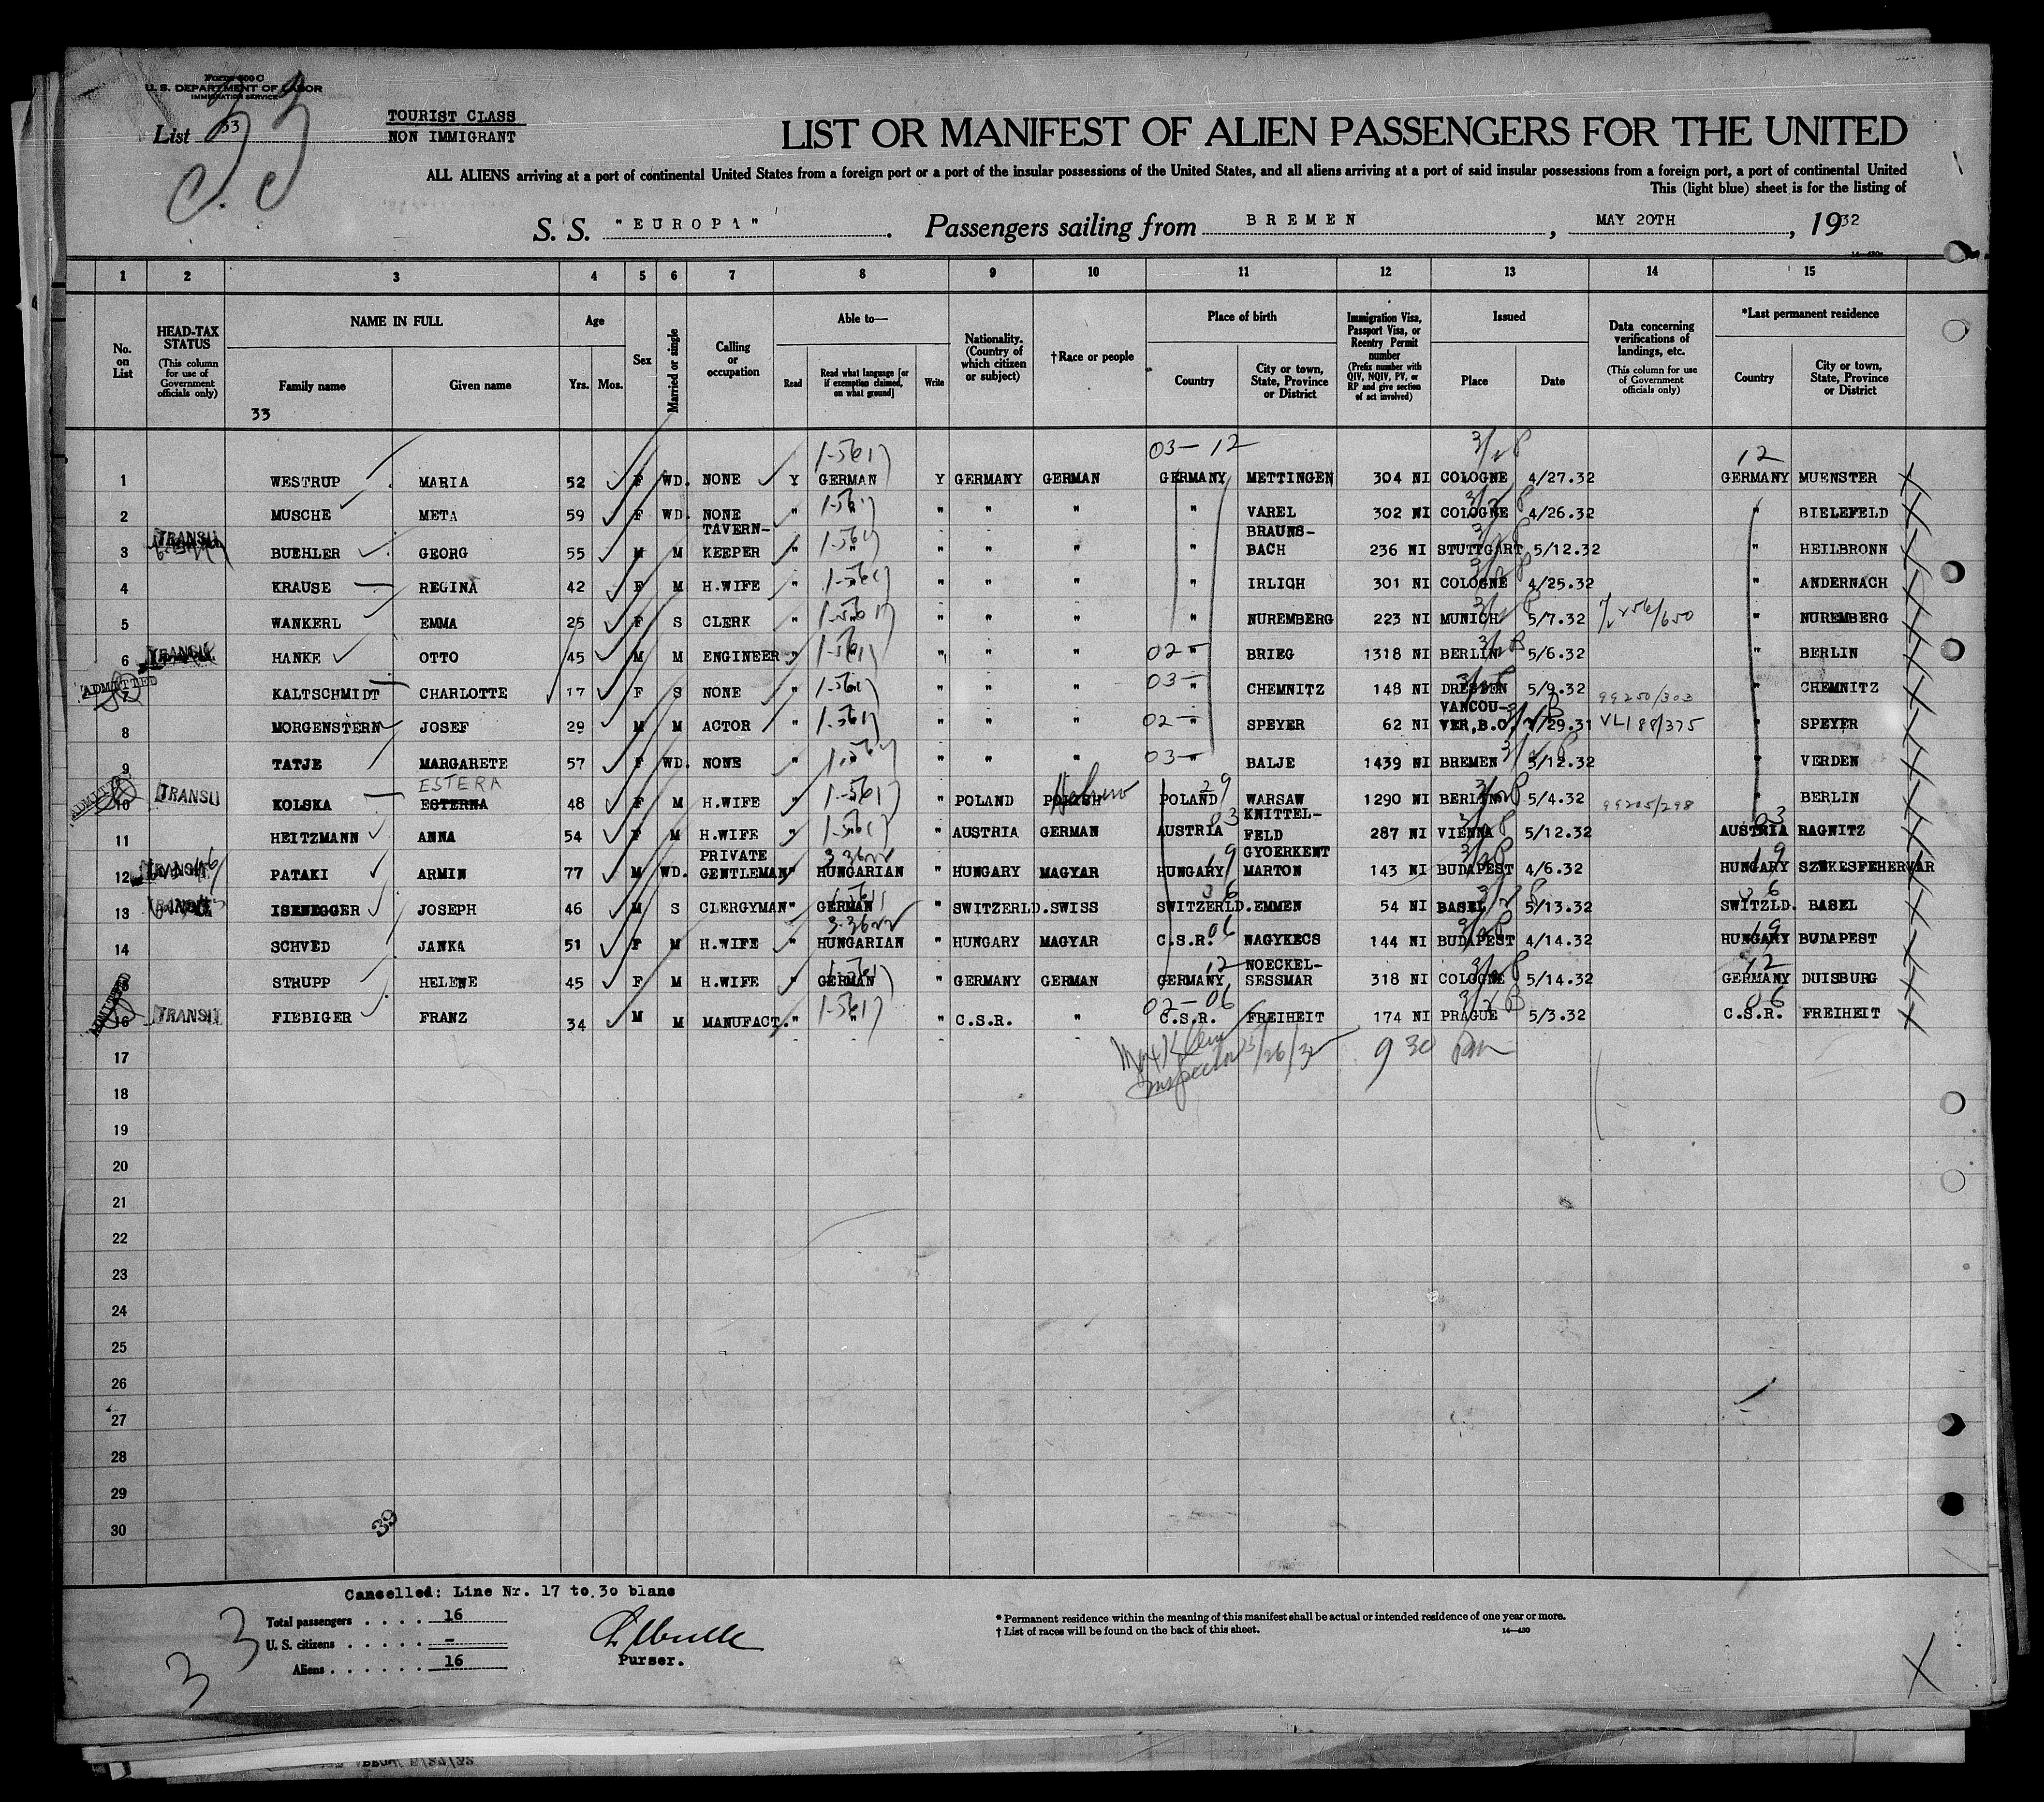 Form 500 C
U. S. DEPARTMENT OF LABOR
IMMIGRATION SERVICE
33
List 33
TOURIST CLASS
NON IMMIGRANT
LIST OR MANIFEST OF ALIEN PASSENGERS FOR THE UNITED
ALL ALIENS arriving at a port of continental United States from a foreign port or a port of the insular possessions of the United States, and all aliens arriving at a port of said insular possessions from a foreign port, a port of continental United
This (light blue) sheet is for the listing of
S. S. "EUROPA" . Passengers sailing from BREMEN , MAY 20TH , 1932
1 2 3 4 5 6 7 8 9 10 11 12 13 14 15
No. on List
HEAD-TAX STATUS (This column for use of Government officials only)
NAME IN FULL
Family name Given name
33
Age
Yrs. Mos.
Sex
Married or single
Calling or occupation
Able to—
Read
Read what language [or if exemption claimed, on what ground]
Write
Nationality. (Country of which citizen or subject)
†Race or people
Place of birth
Country
City or town, State, Province or District
Immigration Visa, Passport Visa, or Reentry Permit number (Prefix number with QIV, NQIV, PV, or RP and give section of act involved)
Issued
Place Date
Data concerning verifications of landings, etc. (This column for use of Government officials only)
*Last permanent residence
Country
City or town, State, Province or District
03-12 12
1 WESTRUP MARIA 52 F WD. NONE Y GERMAN Y GERMANY GERMAN GERMANY METTINGEN 304 NI COLOGNE 4/27.32 GERMANY MUENSTER
2 MUSCHE META 59 F WD. NONE " " " " " " VAREL 302 NI COLOGNE 4/26.32 " BIELEFELD
TRANSIT 3 BUEHLER GEORG 55 M M TAVERN-KEEPER " " " " " " BRAUNS-BACH 236 NI STUTTGART 5/12.32 " HEILBRONN
4 KRAUSE REGINA 42 F M H.WIFE " " " " " " IRLICH 301 NI COLOGNE 4/25.32 " ANDERNACH
5 WANKERL EMMA 25 F S CLERK " " " " " " NUREMBERG 223 NI MUNICH 5/7.32 " NUREMBERG
TRANSIT 6 HANKE OTTO 45 M M ENGINEER " " " " " 02- " BRIEG 1318 NI BERLIN 5/6.32 " BERLIN
ADMITTED 7 KALTSCHMIDT CHARLOTTE 17 F S NONE " " " " " 03- " CHEMNITZ 148 NI DRESDEN 5/9.32 99250/303 " CHEMNITZ
8 MORGENSTERN JOSEF 29 M M ACTOR " " " " " 02- " SPEYER 62 NI VANCOU-VER,B.C. /29.31 VL188/375 " SPEYER
9 TATJE MARGARETE 57 F WD. NONE " " " " " 03- " BALJE 1439 NI BREMEN 5/12.32 " VERDEN
ADMITTED 10 TRANSIT KOLSKA ESTERNA ESTERA 48 F M H.WIFE " " " POLAND POLISH Hebrew POLAND 29 WARSAW 1290 NI BERLIN 5/4.32 99205/298 " BERLIN
11 HEITZMANN ANNA 54 F M H.WIFE " " " AUSTRIA GERMAN AUSTRIA 03 KNITTEL-FELD 287 NI VIENNA 5/12.32 AUSTRIA 03 RAGNITZ
12 TRANSIT PATAKI ARMIN 77 M WD. PRIVATE GENTLEMAN " HUNGARIAN " HUNGARY MAGYAR HUNGARY 19 GYOERKENT MARTON 143 NI BUDAPEST 4/6.32 HUNGARY 19 SZEKESFEHERVAR
13 TRANSIT ISENEGGER JOSEPH 46 M S CLERGYMAN " GERMAN " SWITZERLD. SWISS SWITZERLD. 36 EMMEN 54 NI BASEL 5/13.32 SWITZLD. 36 BASEL
14 SCHVED JANKA 51 F M H.WIFE " HUNGARIAN " HUNGARY MAGYAR C.S.R. 06 NAGYKECS 144 NI BUDAPEST 4/14.32 HUNGARY 19 BUDAPEST
15 STRUPP HELENE 45 F M H.WIFE " GERMAN " GERMANY GERMAN GERMANY 12 NOECKEL-SESSMAR 318 NI COLOGNE 5/14.32 GERMANY 12 DUISBURG
ADMITTED 16 TRANSIT FIEBIGER FRANZ 34 M M MANUFACT. " " " C.S.R. " 02-06 C.S.R. FREIHEIT 174 NI PRAGUE 5/3.32 C.S.R. 06 FREIHEIT
17 Inspector 5/26/32 9 30 pm
18
19
20
21
22
23
24
25
26
27
28
29
30
39
Cancelled: Line Nr. 17 to 30 blanc
Total passengers . . . . 16
U. S. citizens . . . . . –
Aliens . . . . . . 16
Purser.
* Permanent residence within the meaning of this manifest shall be actual or intended residence of one year or more.
† List of races will be found on the back of this sheet.
14—430
3 3